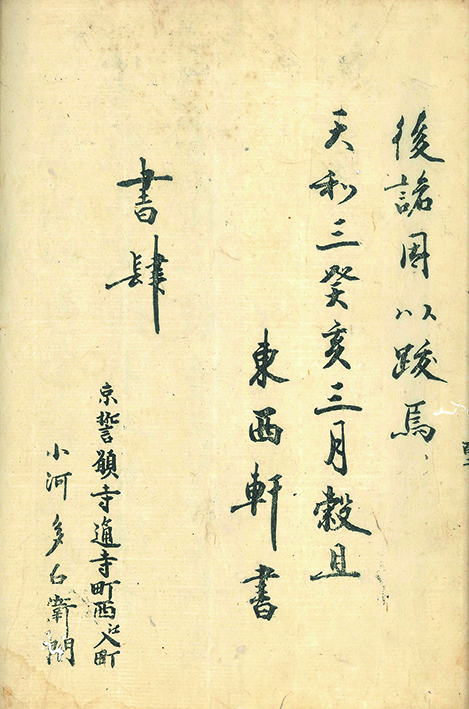 後諾因以跋焉
天和三癸亥三月穀旦
東西軒書
書肆
京誓願寺通寺町西江入町
小河多左衛門